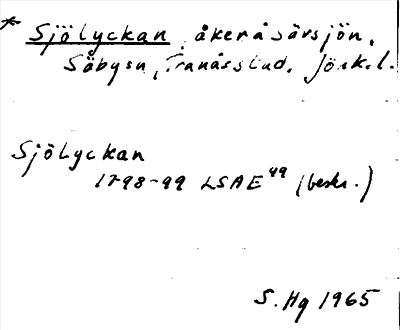 * Sjölyckan, åker å Särsjön,
Säbysn, Tranås stad. Jönk. l.
Sjölyckan
1798-99 LSA E 49 (beskr.)
S. Hg 1965